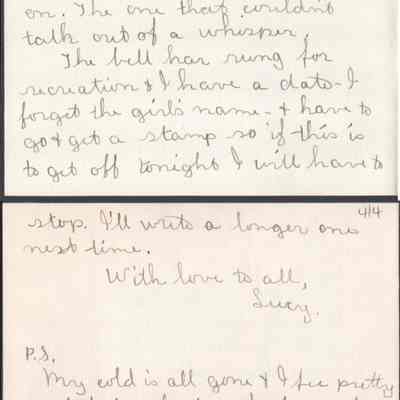 on. The one that couldn't
talk out of a whisper.
The bell has rung for
recreation & I have a date - I
forget the girl's name - & have to
go & get a stamp so if this is
to get off tonight I will have to
4/4
stop. I'll write a longer one
next time.
With love to all,
Lucy.
P.S.
My cold is all gone & I feel pretty